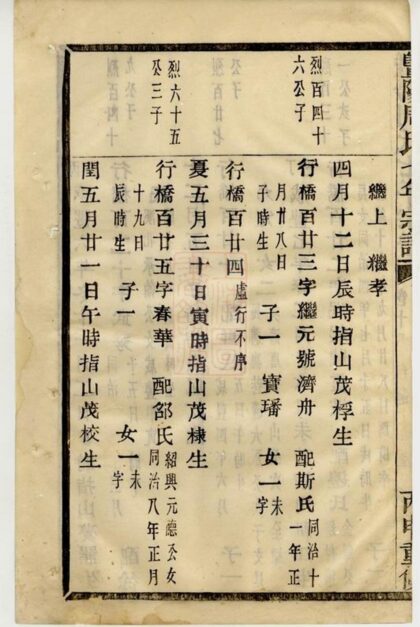 丙申重修
繼上 繼孝
四月十二日辰時指山茂桴生
烈百四十
六公子
行橋百廿三字繼元號濟舟 配斯氏 同治十
一年正
月廿八日
子時生 子一 寶璠 女一 未
字
行橋百廿四 虛行不序
夏五月三十日寅時指山茂棣生
烈六十五
公三子
行橋百廿五字春華 配邵氏 紹興元德公女
同治八年正月
十九日
辰時生 子一 女一 未
字
閏五月廿一日午時指山茂校生